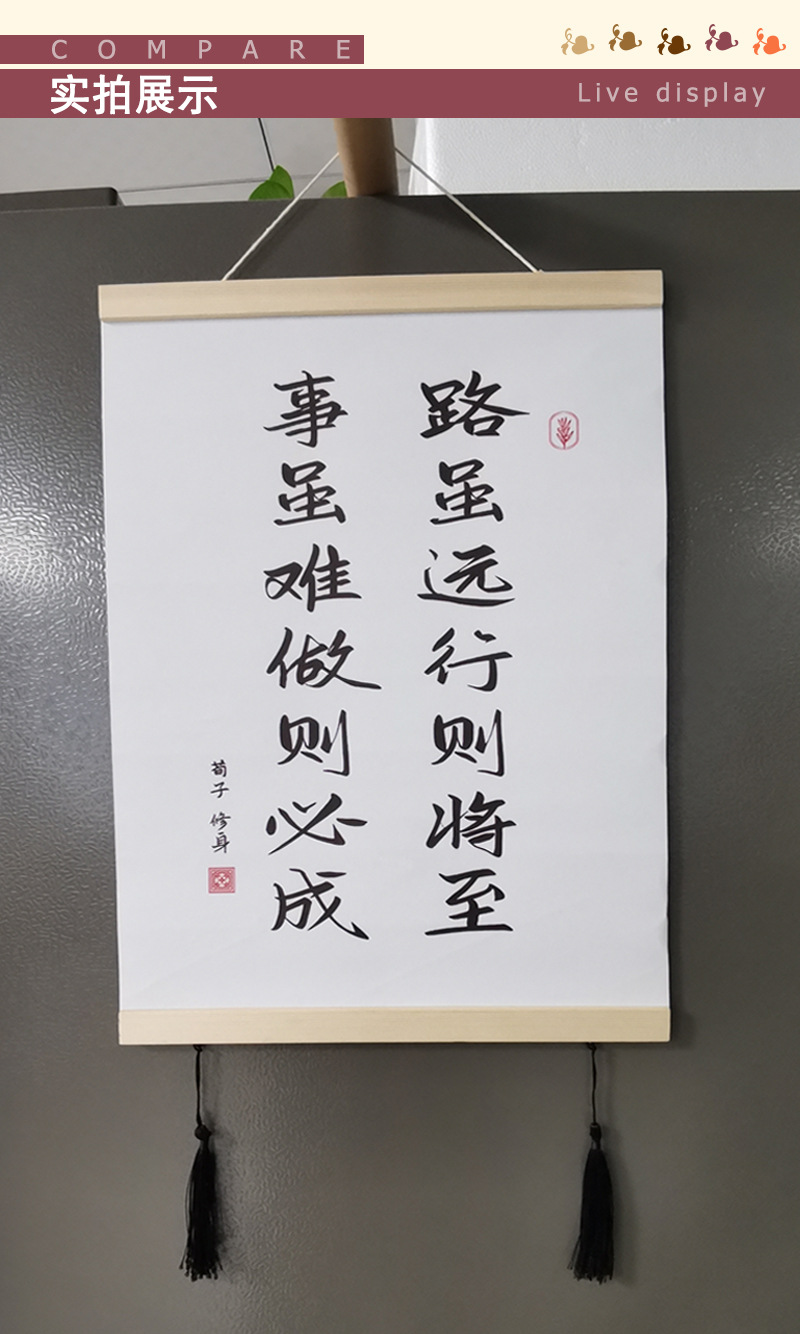 COMPARE
实拍展示
Live display
路虽远行则将至
事虽难做则必成
荀子 修身